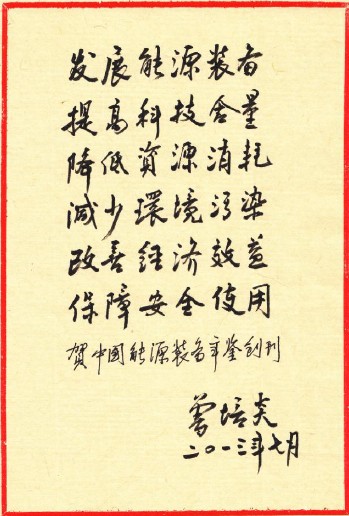 发展能源装备
提高科技含量
降低資源消耗
减少環境污染
改善经济效益
保障安全使用
贺中国能源装备年鉴创刊
曾培炎
二〇一三年七月